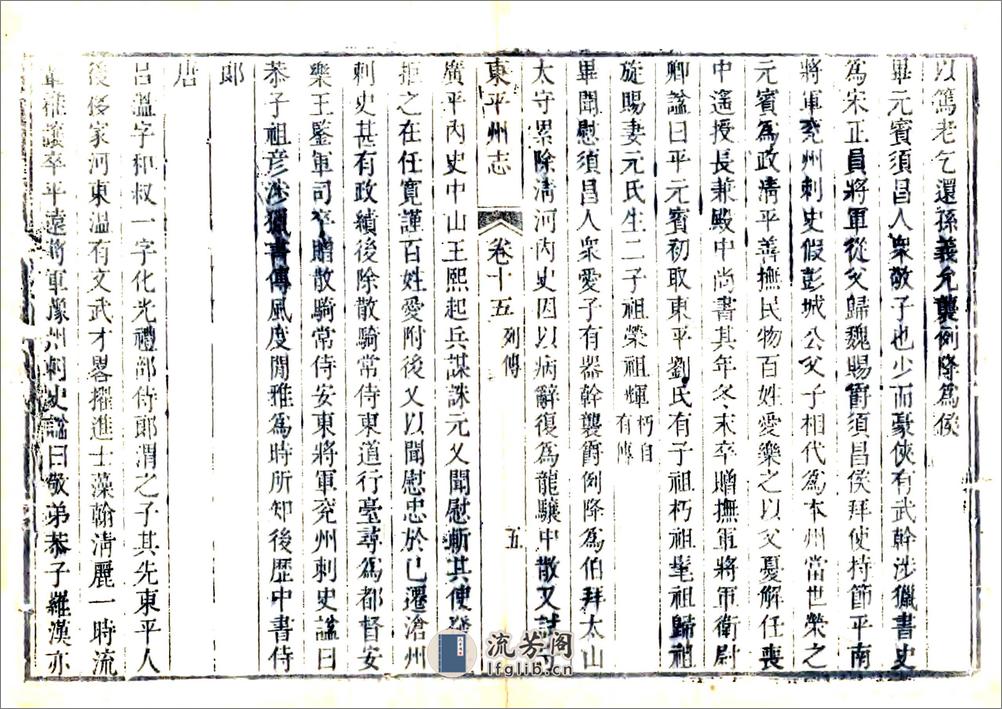 以篤老乞還孫義允襲例降為侯
畢元賓須昌人衆敬子也少而豪俠有武幹涉獵書史
為宋正員將軍從父歸魏賜爵須昌侯拜使持節平南
將軍兖州刺史假彭城公父子相代為本州當世榮之
元賓為政清平善撫民物百姓愛樂之以父憂解任喪
中遙授長兼殿中尚書其年冬末卒贈撫軍將軍衛尉
卿諡曰平元賓初取東平劉氏有子祖朽祖髦祖歸祖
旋賜妻元氏生二子祖榮祖輝朽自有傳
畢聞慰須昌人衆愛子有器幹襲爵例降為伯拜太山
太守累除清河內史因以病辭復為龍驤中散又試守
東平州志 卷十五 列傳 五
廣平內史中山王熙起兵謀誅元乂聞慰斬其使發兵
拒之在任寬謹百姓愛附後乂以聞慰忠於己遷滄州
刺史甚有政績後除散騎常侍東道行臺尋為都督安
樂王鑒軍司卒贈散騎常侍安東將軍兖州刺史諡曰
恭子祖彥涉獵書傳風度閒雅為時所知後歷中書侍
郎
唐
呂溫字和叔一字化光禮部侍郎渭之子其先東平人
後侈家河東溫有文武才畧擢進士藻翰清麗一時流
推讓卒平遠將軍豫州刺史諡曰敬弟恭子羅漢亦
流芳阁
lfglib.cn